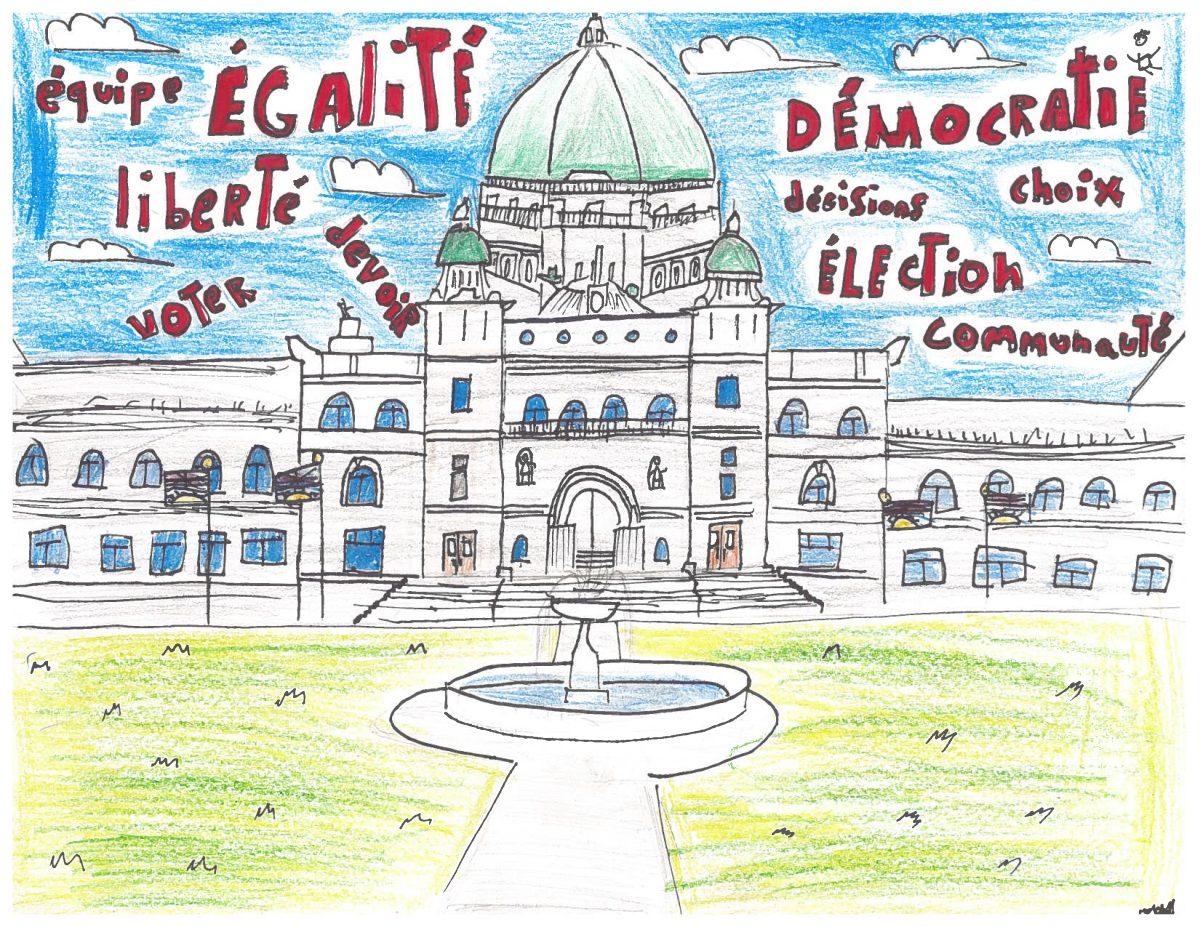 équipe
ÉGaliTÉ
DÉMOCRATiE
liberTé
décisions
choix
devoir
ÉLECTion
voTER
communauTé